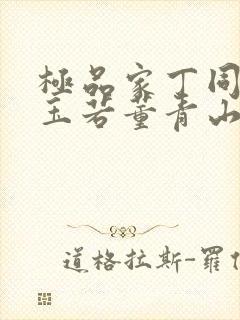 極品家丁同
玉若董青山
道格拉斯-羅